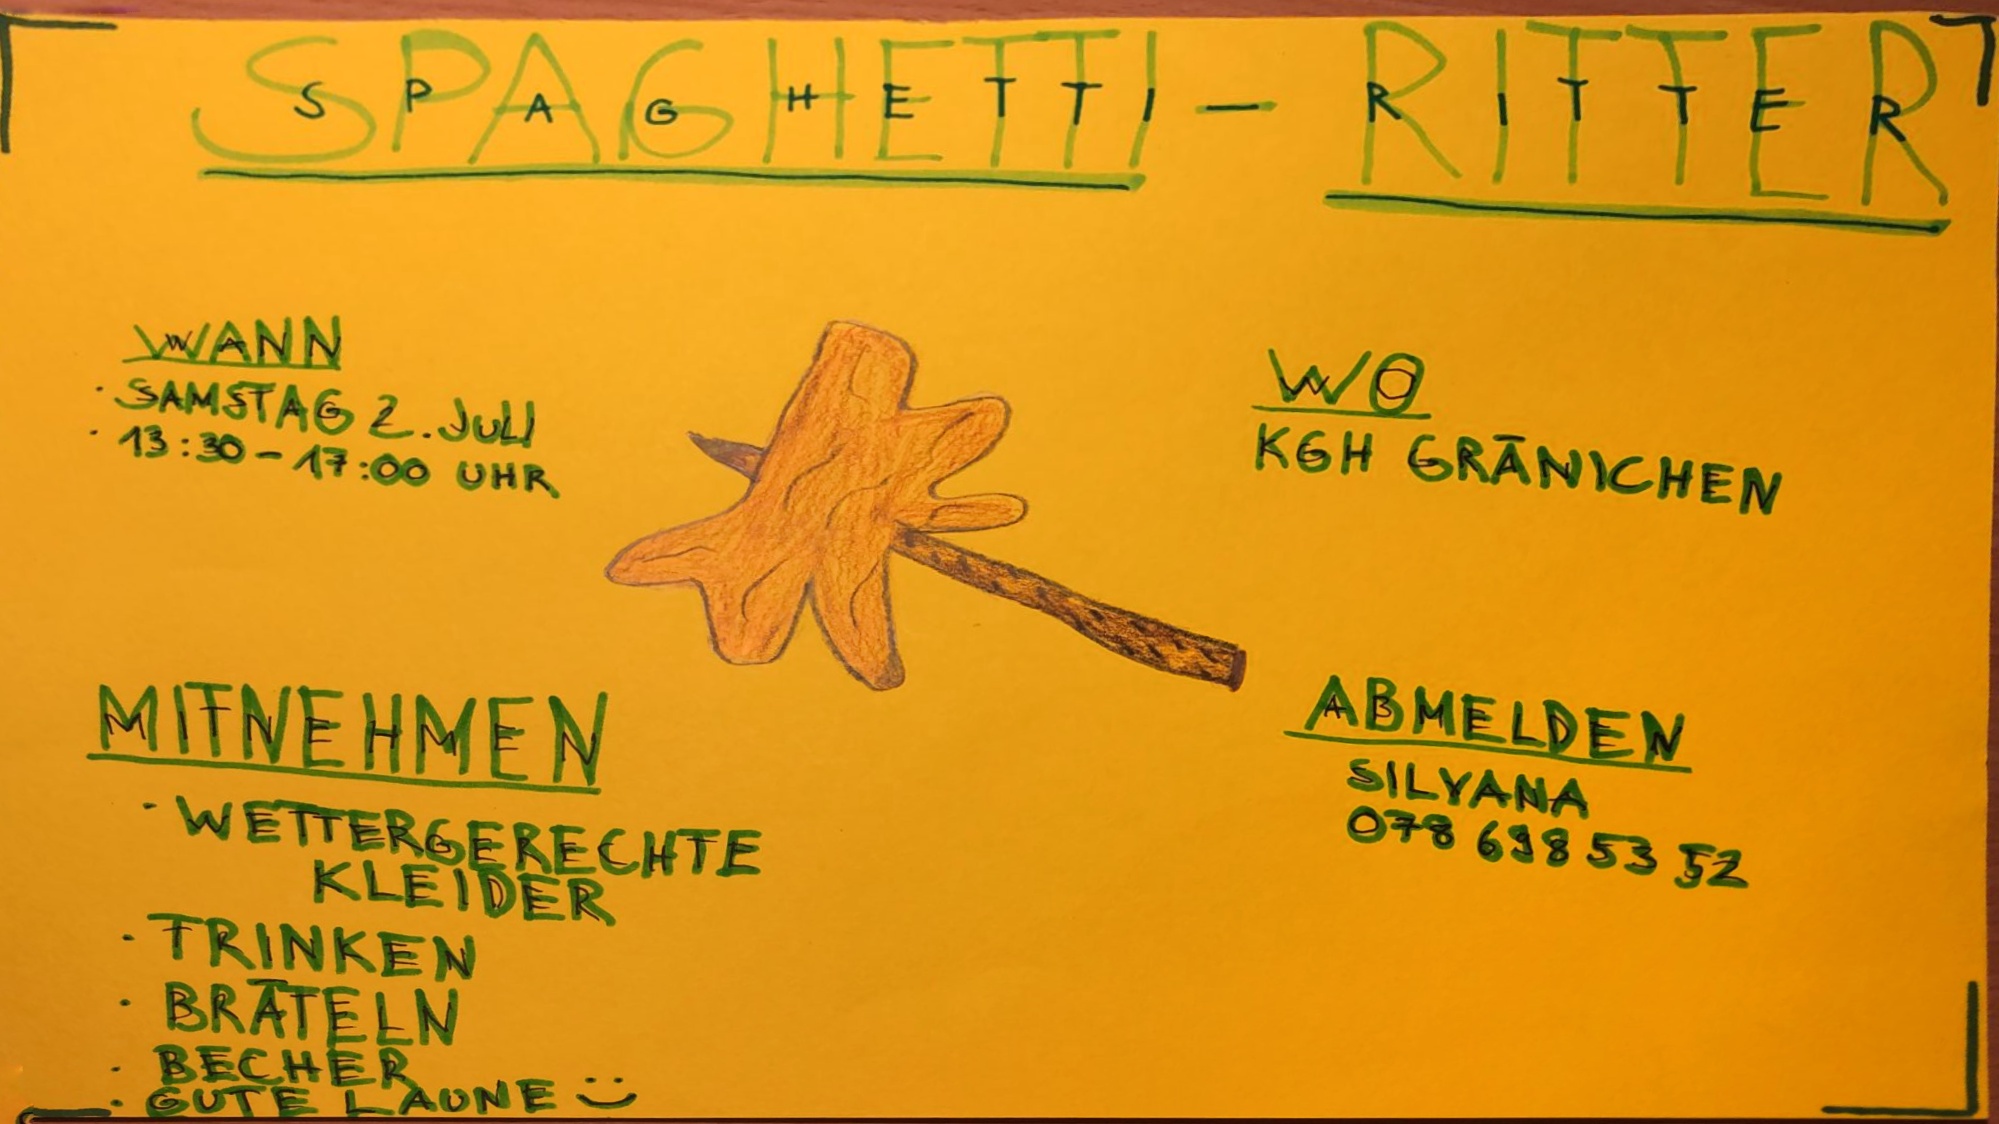 SPAGHETTI - RITTER
WANN
· SAMSTAG 2. JULI
· 13:30 - 17:00 UHR
WO
KGH GRÄNICHEN
MITNEHMEN
· WETTERGERECHTE
KLEIDER
· TRINKEN
· BRÄTELN
· BECHER
· GUTE LAUNE
ABMELDEN
SILVANA
078 698 53 52